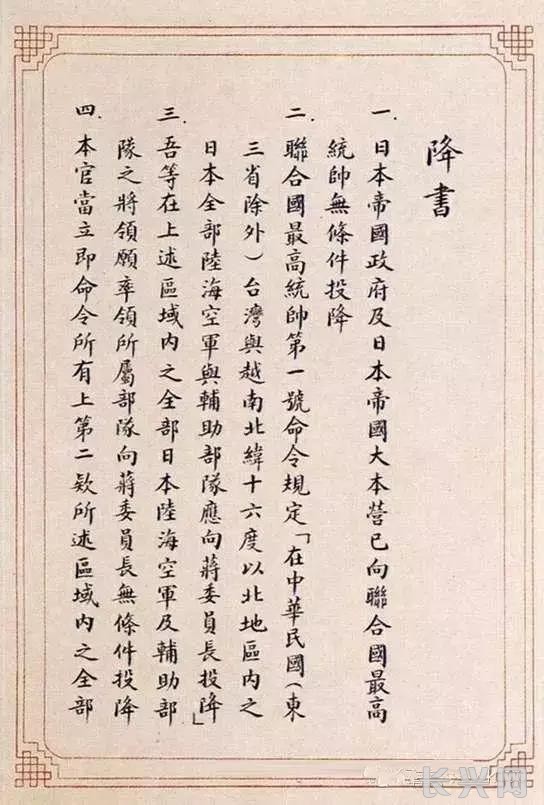 降書
一.日本帝國政府及日本帝國大本營已向聯合國最高
統帥無條件投降
二.聯合國最高統帥第一號命令規定「在中華民國(東
三省除外)台灣與越南北緯十六度以北地區內之
日本全部陸海空軍與輔助部隊應向蔣委員長投降」
三.吾等在上述區域內之全部日本陸海空軍及輔助部
隊之將領願率領所屬部隊向蔣委員長無條件投降
四.本官當立即命令所有上第二欵所述區域內之全部
长兴网